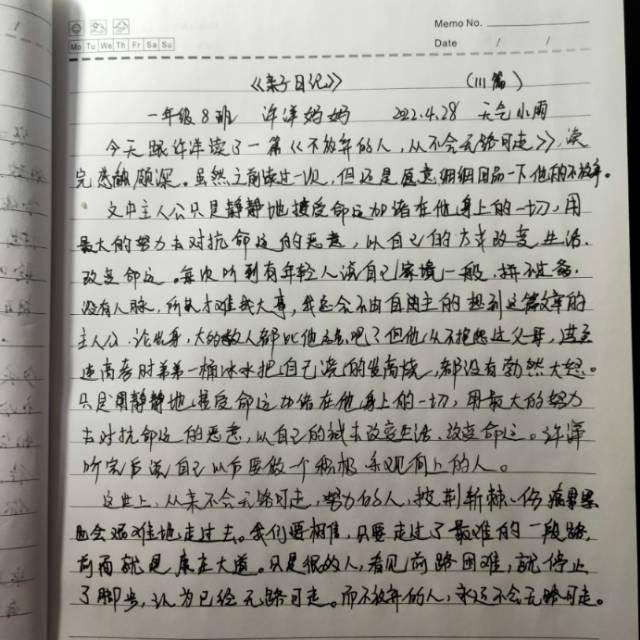 Memo No.
Mo Tu We Th Fr Sa Su
Date / /
《亲子日记》 (111篇)
一年级8班 洋洋妈妈 2022.4.28 天气小雨
今天跟许洋读了一篇《不放弃的人，从不会无路可走》，读
完感触颇深。虽然之前读过一次，但还是愿意细细回品一下他的不放弃。
文中主人公只是静静地接受命运加诸在他身上的一切，用
最大的努力去对抗命运的恶意，以自己的方式改变生活，
改变命运。每次听到有年轻人说自己家境一般，拼不过爸，
没有人脉，所以才难成大事，我总会不由自主的想到这篇文章的
主人公，论出身，大多数人都比他好吧？但他从不抱怨过父母，甚至
连高考时弟弟一桶冰水把自己浇的发高烧，都没有勃然大怒。
只是用静静地接受命运加诸在他身上的一切，用最大的努力
去对抗命运的恶意，以自己的方式去改变生活、改变命运。许洋
听完后说自己以后要做一个积极乐观向上的人。
这世上，从来不会无路可走，努力的人，披荆斩棘、伤痕累累
也会艰难地走过去。我们要相信，只要走过了最难的一段路，
前面就是康庄大道。只是很多人，看见前路困难，就停止
了脚步，认为已经无路可走。而不放弃的人，永远不会无路可走。